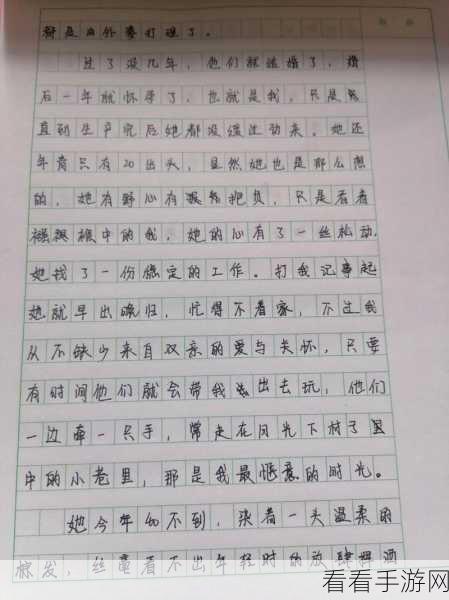 都是由外婆打理了。
过了没几年，他们就结婚了，婚
后一年就怀孕了，也就是我，只是她
直到生产完后她都没缓过劲来。她还
年青只有20出头，显然她也是那么想
的，她有野心有报负，只是看着
襁褓中的我，她的心有了一丝松动，
她找了一份稳定的工作。打我记事起
她就早出晚归，忙得不着家，不过我
从不缺少来自双亲的爱与关怀，只要
有时间他们就会带我出去玩，他们
一边牵一只手，常走在月光下村子里
中的小巷里，那是我最惬意的时光。
她今年40不到，染着一头温柔的
棕发，丝毫看不出年轻时的放肆
看看手游网